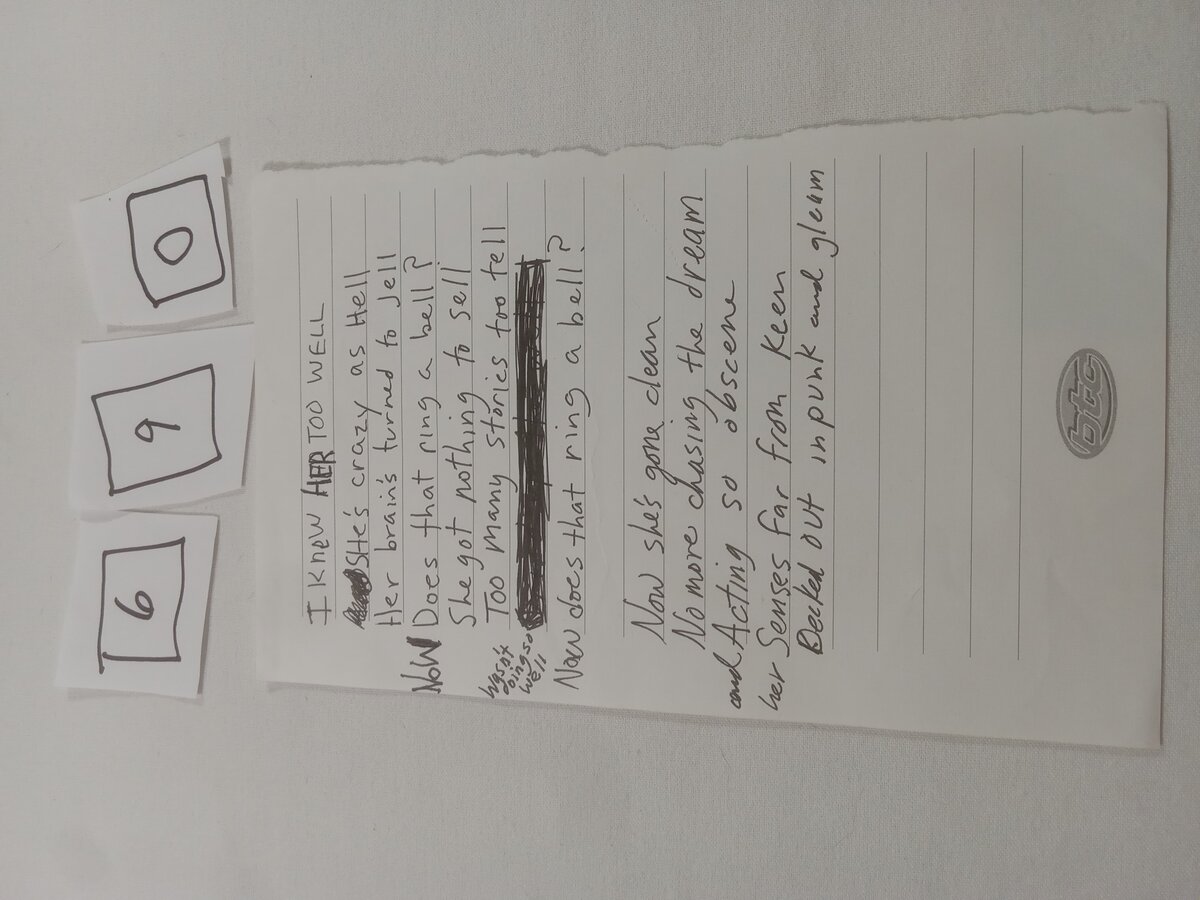 6 9 0
I KNEW HER TOO WELL
SHe's crazy as Hell
Her brain's turned to Jell
NOW Does that ring a bell?
She got nothing to sell
TOO many stories too tell
wasn't
doing so
well
Now does that ring a bell?
Now she's gone clean
No more chasing the dream
and Acting so obscene
her Senses far from keen
Decked out in punk and gleam
btc